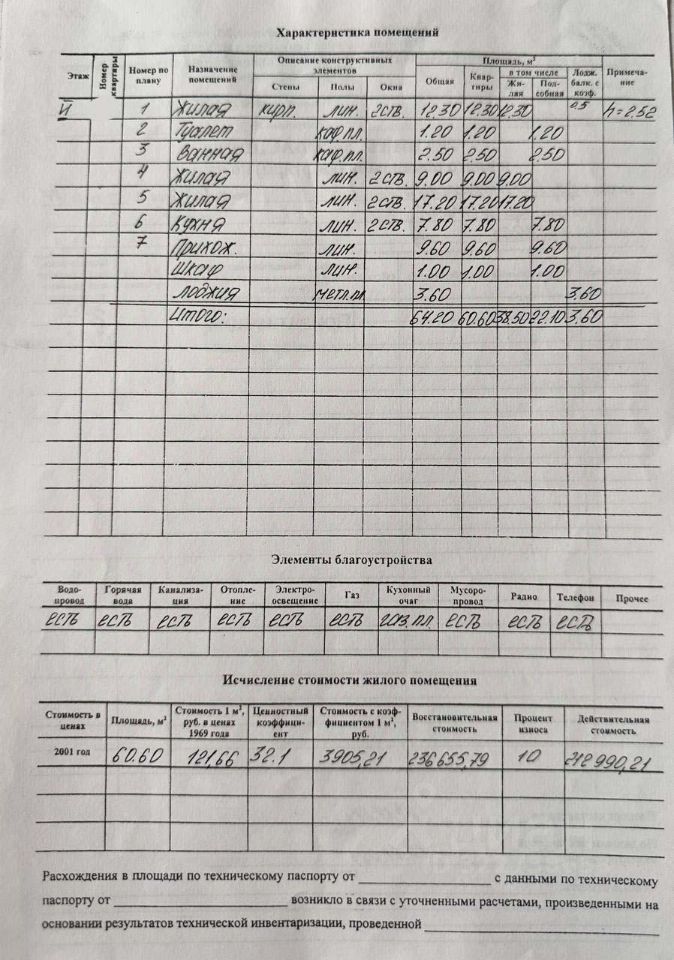 Характеристика помещений
Этаж | Номер квартиры | Номер по плану | Назначение помещений | Описание конструктивных элементов | Площадь, м² | Примеча-ние
Стены | Полы | Окна | Общая | Квар-тиры | в том числе | Лодж. балк. с коэф.
Жи-лая | Под-собная
1 | Жилая | кирп. | лин. | 2 ств. | 12.30 | 12.30 | 12.30 | 0.5 | h=2.52
2 | Туалет | каф.пл. | 1.20 | 1.20 | 1.20
3 | Ванная | каф.пл. | 2.50 | 2.50 | 2.50
4 | Жилая | лин. | 2 ств. | 9.00 | 9.00 | 9.00
5 | Жилая | лин. | 2 ств. | 17.20 | 17.20 | 17.20
6 | Кухня | лин. | 2 ств. | 7.80 | 7.80 | 7.80
7 | Прихож. | лин. | 9.60 | 9.60 | 9.60
Шкаф | лин. | 1.00 | 1.00 | 1.00
Лоджия | метл.пл. | 3.60 | 3.60
Итого: | 64.20 | 60.60 | 38.50 | 22.10 | 3.60
Элементы благоустройства
Водо-провод | Горячая вода | Канализа-ция | Отопле-ние | Электро-освещение | Газ | Кухонный очаг | Мусоро-провод | Радио | Телефон | Прочее
есть | есть | есть | есть | есть | есть | газ. пл. | есть | есть | есть
Исчисление стоимости жилого помещения
Стоимость в ценах | Площадь, м² | Стоимость 1 м², руб. в ценах 1969 года | Ценностный коэффици-ент | Стоимость с коэф-фициентом 1 м², руб. | Восстановительная стоимость | Процент износа | Действительная стоимость
2001 год | 60.60 | 121,66 | 32.1 | 3905,21 | 236655,79 | 10 | 212990,21
Расхождения в площади по техническому паспорту от ____ с данными по техническому
паспорту от ____ возникло в связи с уточненными расчетами, произведенными на
основании результатов технической инвентаризации, проведенной ____